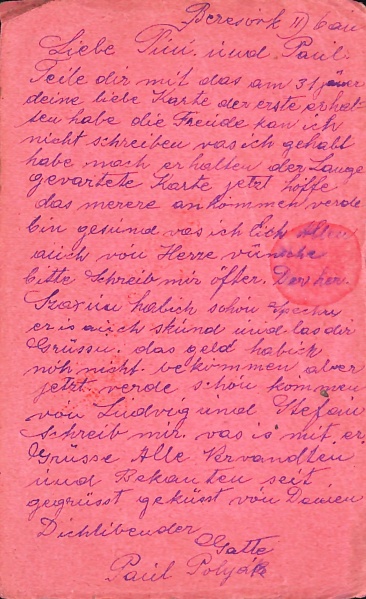 Beresovk II 6 an
Liebe Tini und Paul.
Teile dir mit das am 31 jäner
deine liebe Karte der erste erhal-
ten habe die Freude kan ich
nicht schreiben vas ich gehabt
habe nach erhalten der Lange
gevartete Karte jetzt hoffe
das merere ankommen verde
bin gesund vas ich Eich Allen
auch von Herze vünsche
bitte Schreib mir öfter. Der her.
habich schon
er is auch skund und las dir
Grüssn. das geld habich
noh nicht. bekommen aber
jetzt verde schon kommen
von Ludvig und Stefan
schreib mir. vas is mit er
Grüsse Alle Vervandten
und Bekanten seit
gegrüsst geküsst von Deinen
Dichlibender
Gatte
Paul Polyák